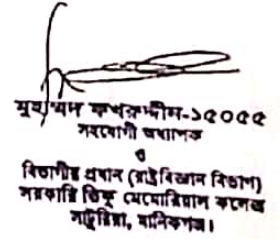 মুহাম্মদ ফখরুদ্দীন-১৫০৫৫
সহযোগী অধ্যাপক
ও
বিভাগীয় প্রধান (রাষ্ট্রবিজ্ঞান বিভাগ)
সরকারি ভিকু মেমোরিয়াল কলেজ
সাটুরিয়া, মানিকগঞ্জ।